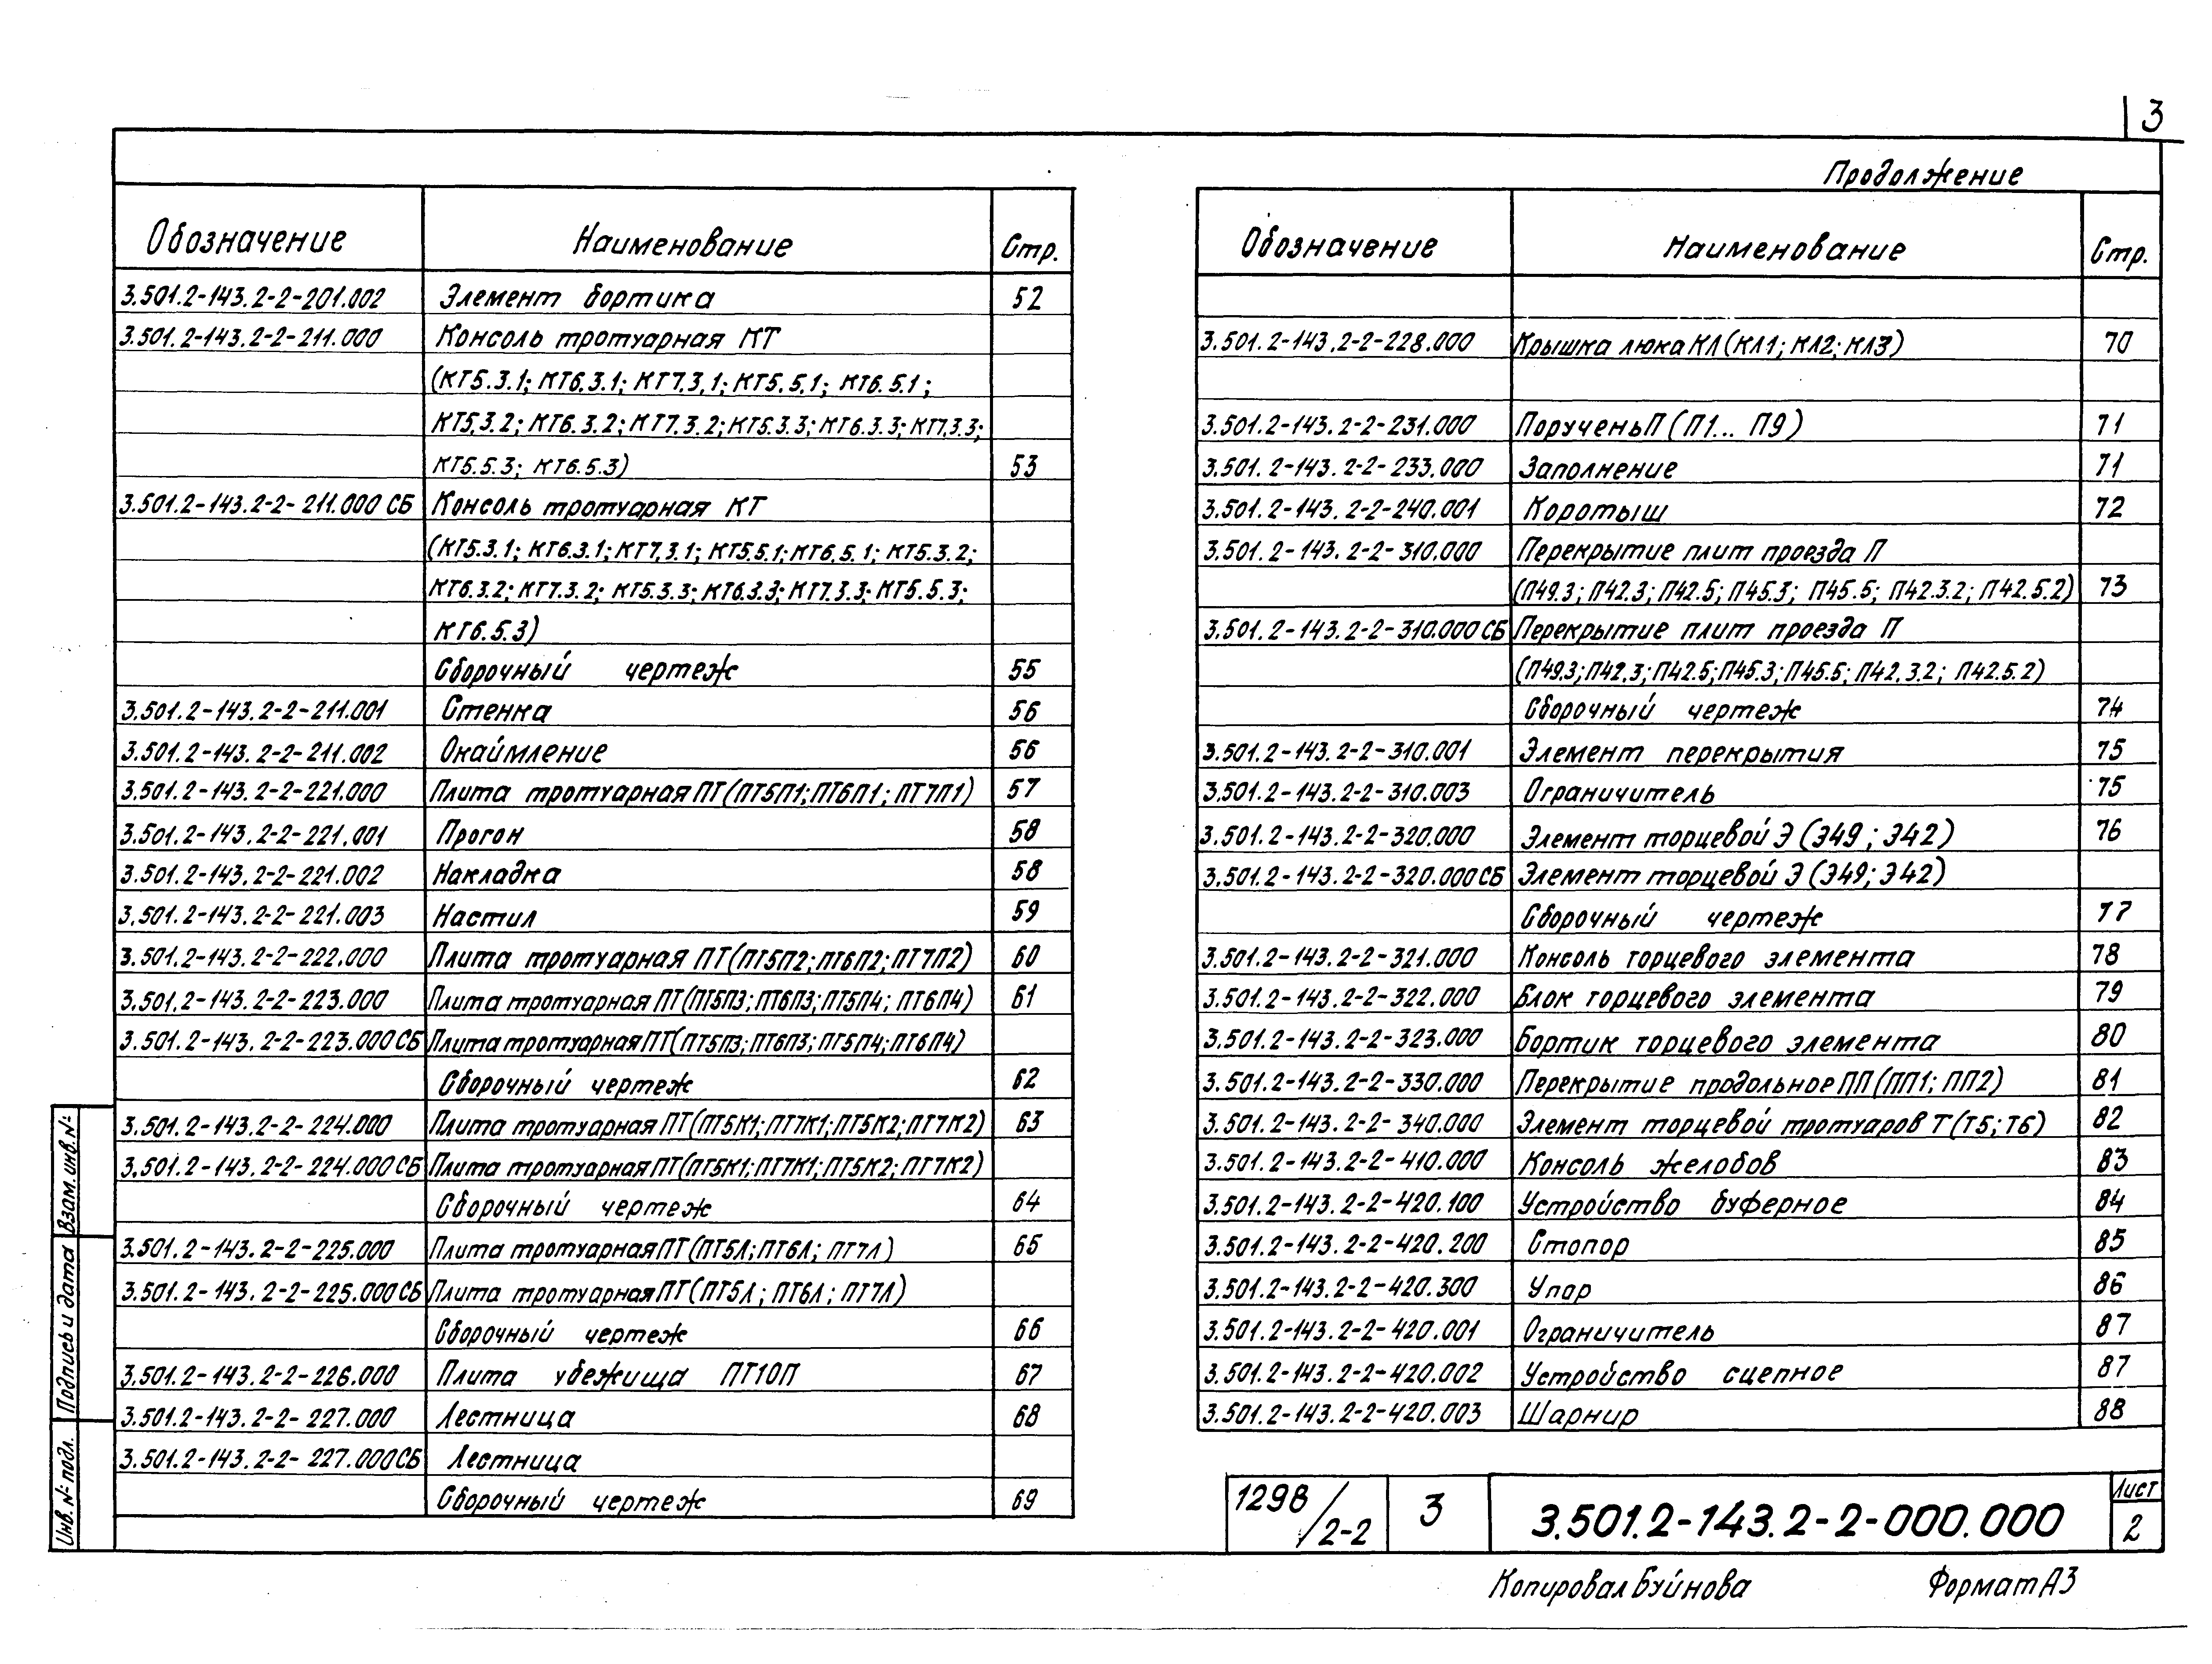 3
Продолжение
Обозначение Наименование Стр.
3.501.2-143.2-2-201.002 Элемент бортика 52
3.501.2-143.2-2-211.000 Консоль тротуарная КТ
(КТ5.3.1; КТ6.3.1; КТ7.3.1; КТ5.5.1; КТ6.5.1;
КТ5.3.2; КТ6.3.2; КТ7.3.2; КТ5.3.3; КТ6.3.3; КТ7.3.3;
КТ5.5.3; КТ6.5.3) 53
3.501.2-143.2-2-211.000 СБ Консоль тротуарная КТ
(КТ5.3.1; КТ6.3.1; КТ7.3.1; КТ5.5.1; КТ6.5.1; КТ5.3.2;
КТ6.3.2; КТ7.3.2; КТ5.3.3; КТ6.3.3; КТ7.3.3; КТ5.5.3;
КТ6.5.3)
Сборочный чертеж 55
3.501.2-143.2-2-211.001 Стенка 56
3.501.2-143.2-2-211.002 Окаймление 56
3.501.2-143.2-2-221.000 Плита тротуарная ПТ(ПТ5П1; ПТ6П1; ПТ7П1) 57
3.501.2-143.2-2-221.001 Прогон 58
3.501.2-143.2-2-221.002 Накладка 58
3.501.2-143.2-2-221.003 Настил 59
3.501.2-143.2-2-222.000 Плита тротуарная ПТ(ПТ5П2; ПТ6П2; ПТ7П2) 60
3.501.2-143.2-2-223.000 Плита тротуарная ПТ(ПТ5П3; ПТ6П3; ПТ5П4; ПТ6П4) 61
3.501.2-143.2-2-223.000 СБ Плита тротуарная ПТ(ПТ5П3; ПТ6П3; ПТ5П4; ПТ6П4)
Сборочный чертеж 62
3.501.2-143.2-2-224.000 Плита тротуарная ПТ(ПТ5К1; ПТ7К1; ПТ5К2; ПТ7К2) 63
3.501.2-143.2-2-224.000 СБ Плита тротуарная ПТ(ПТ5К1; ПТ7К1; ПТ5К2; ПТ7К2)
Сборочный чертеж 64
3.501.2-143.2-2-225.000 Плита тротуарная ПТ(ПТ5Л; ПТ6Л; ПТ7Л) 65
3.501.2-143.2-2-225.000 СБ Плита тротуарная ПТ(ПТ5Л; ПТ6Л; ПТ7Л)
Сборочный чертеж 66
3.501.2-143.2-2-226.000 Плита убежища ПТ10П 67
3.501.2-143.2-2-227.000 Лестница 68
3.501.2-143.2-2-227.000 СБ Лестница
Сборочный чертеж 69
Обозначение Наименование Стр.
3.501.2-143.2-2-228.000 Крышка люка КЛ (КЛ1; КЛ2; КЛ3) 70
3.501.2-143.2-2-231.000 Поручень П (П1... П9) 71
3.501.2-143.2-2-233.000 Заполнение 71
3.501.2-143.2-2-240.001 Коротыш 72
3.501.2-143.2-2-310.000 Перекрытие плит проезда П
(П49.3; П42.3; П42.5; П45.3; П45.5; П42.3.2; П42.5.2) 73
3.501.2-143.2-2-310.000 СБ Перекрытие плит проезда П
(П49.3; П42.3; П42.5; П45.3; П45.5; П42.3.2; П42.5.2)
Сборочный чертеж 74
3.501.2-143.2-2-310.001 Элемент перекрытия 75
3.501.2-143.2-2-310.003 Ограничитель 75
3.501.2-143.2-2-320.000 Элемент торцевой Э (Э49; Э42) 76
3.501.2-143.2-2-320.000 СБ Элемент торцевой Э (Э49; Э42)
Сборочный чертеж 77
3.501.2-143.2-2-321.000 Консоль торцевого элемента 78
3.501.2-143.2-2-322.000 Блок торцевого элемента 79
3.501.2-143.2-2-323.000 Бортик торцевого элемента 80
3.501.2-143.2-2-330.000 Перекрытие продольное ПП (ПП1; ПП2) 81
3.501.2-143.2-2-340.000 Элемент торцевой тротуаров Т (Т5; Т6) 82
3.501.2-143.2-2-410.000 Консоль желобов 83
3.501.2-143.2-2-420.100 Устройство буферное 84
3.501.2-143.2-2-420.200 Стопор 85
3.501.2-143.2-2-420.300 Упор 86
3.501.2-143.2-2-420.001 Ограничитель 87
3.501.2-143.2-2-420.002 Устройство сцепное 87
3.501.2-143.2-2-420.003 Шарнир 88
Взам. инв. №
Подпись и дата
Инв. № подл.
1298/2-2 3 3.501.2-143.2-2-000.000 Лист 2
Копировал Буйнова Формат А3